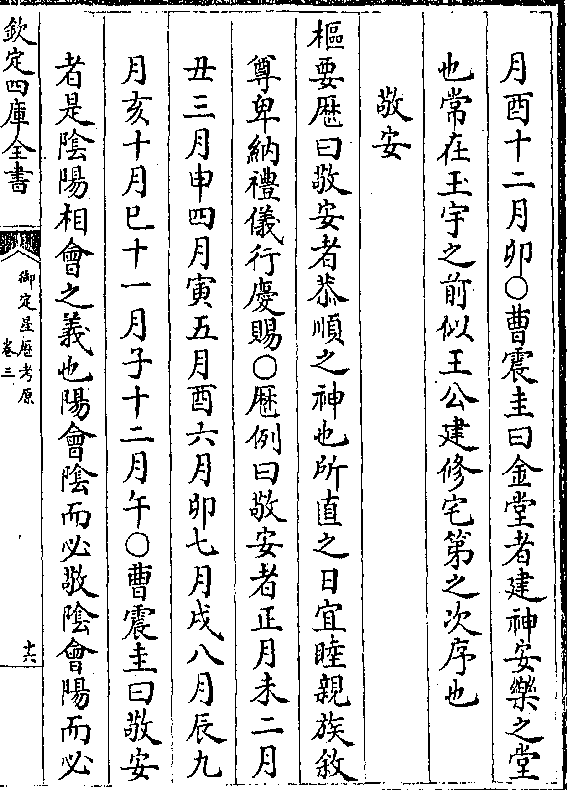 月酉十二月卯○曹震圭曰金堂者建神安樂之堂
也常在玉宇之前似王公建修宅第之次序也
敬安
樞要厯曰敬安者恭順之神也所直之日宜睦親族敘
尊卑納禮儀行慶賜○厯例曰敬安者正月未二月
丑三月申四月寅五月酉六月卯七月戌八月辰九
月亥十月巳十一月子十二月午○曹震圭曰敬安
者是陰陽相會之義也陽會陰而必敬陰會陽而必
欽定四庫全書
御定星厯考原
卷三
十六